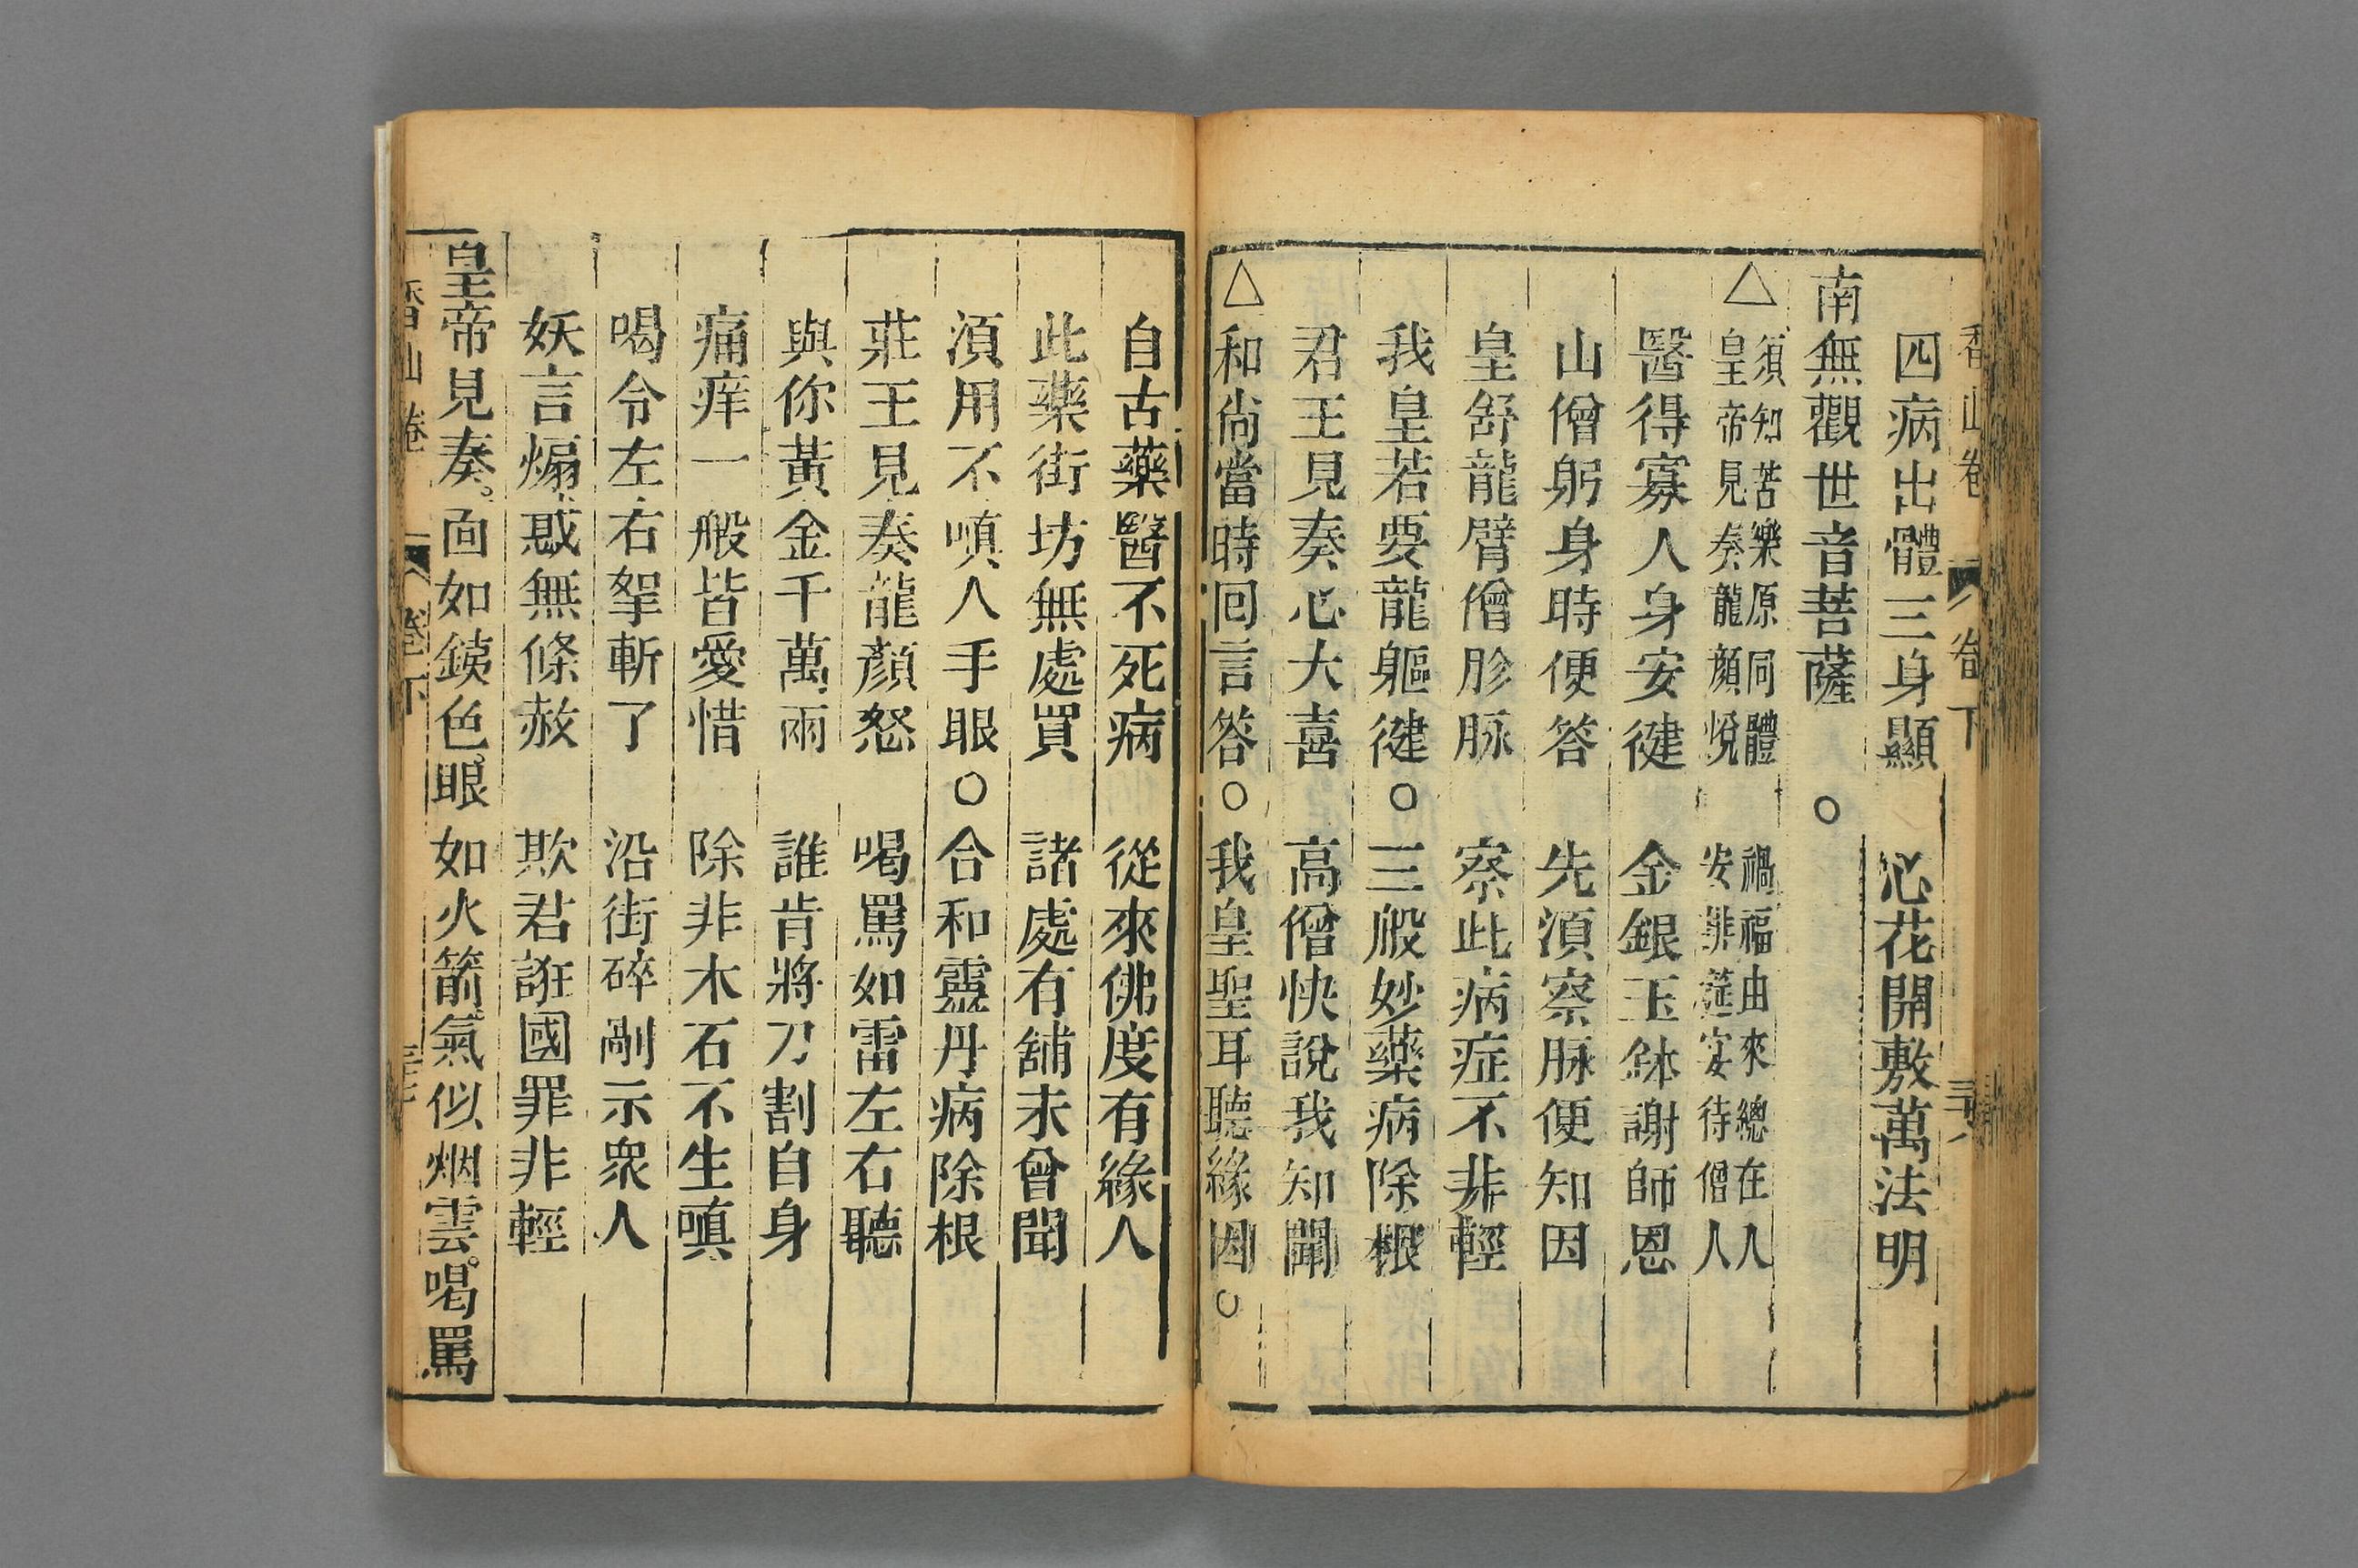 香山卷 卷下
四病出體三身顯 心花開敷萬法明
南無觀世音菩薩○
△須知苦樂原同體 禍福由來總在人
皇帝見奏龍顔悅 安排筵宴待僧人
醫得寡人身安健 金銀玉鉢謝師恩
山僧躬身時便答 先須察脉便知因
皇舒龍臂僧胗脉 察此病症不非輕
我皇若要龍軀健○三般妙藥病除根
君王見奏心大喜 高僧快說我知聞
△和尚當時回言答○我皇聖耳聽緣因○
自古藥醫不死病 從來佛度有緣人
此藥街坊無處買 諸處有舖未曾聞
須用不嗔人手眼○合和靈丹病除根
莊王見奏龍顔怒 喝罵如雷左右聽
與你黃金千萬兩 誰肯將刀割自身
痛痒一般皆愛惜 除非木石不生嗔
喝令左右拏斬了 沿街碎剮示衆人
妖言煽惑無條赦 欺君誑國罪非輕
皇帝見奏。面如鐵色。眼如火箭。氣似烟雲。喝罵
香山卷 卷下